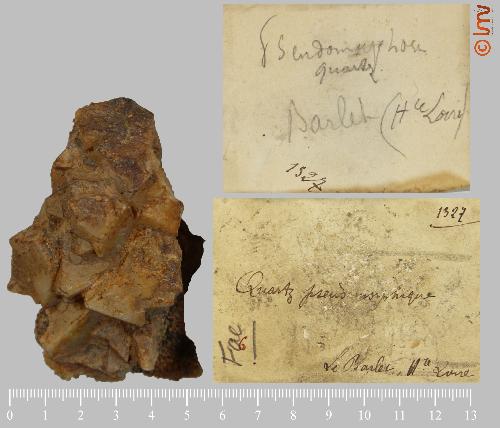 © lmv
Pseudomorphose
quartz
Barlet (Hte Loire)
1327
1327
Quartz pseudomorphique
Fac
6
Le Barlet, Hte Loire
0 1 2 3 4 5 6 7 8 9 10 11 12 13